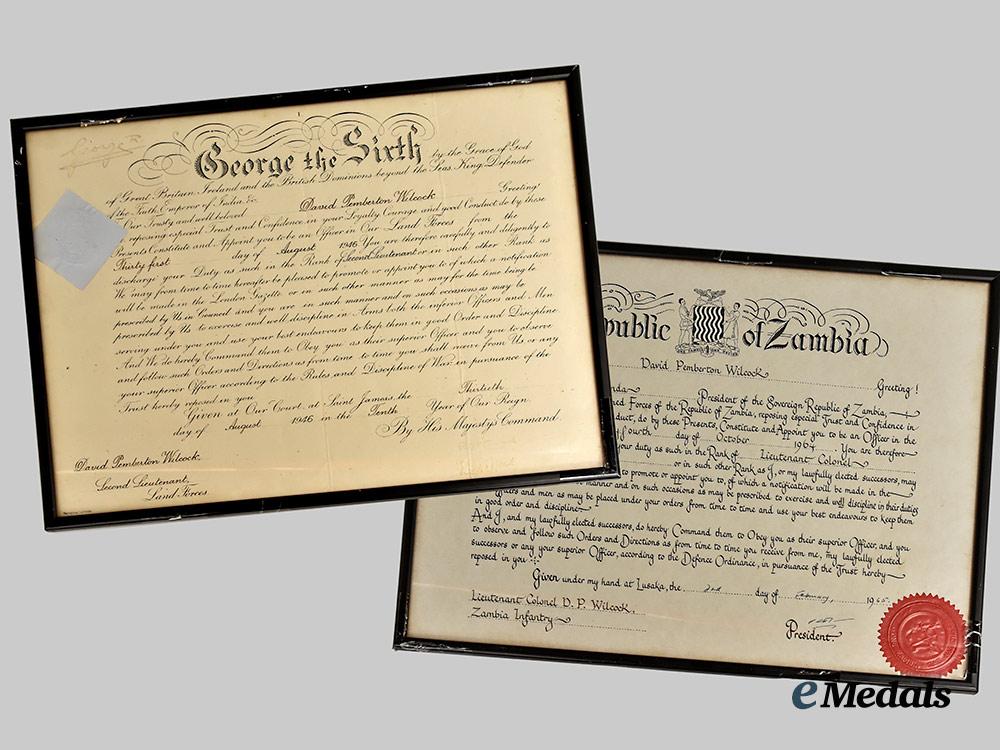 George the Sixth by the Grace of God
of Great Britain, Ireland and the British Dominions beyond the Seas King, Defender
of the Faith, Emperor of India, &c.
Our Trusty and well beloved David Pemberton Wilcock Greeting!
reposing especial Trust and Confidence in your Loyalty Courage and good Conduct do by these
Presents Constitute and Appoint you to be an Officer in Our Land Forces from the
Thirty first day of August 1946 You are therefore carefully and diligently to
discharge your Duty as such in the Rank of Second Lieutenant or in such other Rank as
We may from time to time hereafter be pleased to promote or appoint you to of which a notification
will be made in the London Gazette or in such other manner as may for the time being be
prescribed by Us in Council and you are in such manner and on such occasions as may be
prescribed by Us to exercise and well discipline in Arms both the inferior Officers and Men
serving under you and use your best endeavours to keep them in good Order and Discipline
And We do hereby Command them to Obey you as their superior Officer and you to observe
and follow such Orders and Directions as from time to time you shall receive from Us or any
your superior Officer according to the Rules and Discipline of War in pursuance of the
Trust hereby reposed in you
Given at Our Court, at Saint James's the Thirtieth
day of August 1946 in the Tenth Year of Our Reign
By His Majesty's Command
David Pemberton Wilcock.
Second Lieutenant,
Land Forces
public of Zambia
David Pemberton Wilcock Greeting!
nda President of the Sovereign Republic of Zambia,
ed Forces of the Republic of Zambia, reposing especial Trust and Confidence in
duct, do by these Presents, Constitute and Appoint you to be an Officer in the
fourth day of October 1964. You are therefore
your duty as such in the Rank of Lieutenant Colonel
or in such other Rank as I, or my lawfully elected successors, may
to promote or appoint you to, of which a notification will be made in the
manner and on such occasions as may be prescribed to exercise and well discipline in their duties
officers and men as may be placed under your orders from time to time and use your best endeavours to keep them
in good order and discipline.
And I, and my lawfully elected successors, do hereby Command them to Obey you as their superior Officer, and you
to observe and follow such Orders and Directions as from time to time you receive from me, my lawfully elected
successors or any your superior Officer, according to the Defence Ordinance, in pursuance of the Trust hereby
reposed in you
Given under my hand at Lusaka, the 2nd day of February, 1965.
Lieutenant Colonel D. P. Wilcock,
Zambia Infantry
President.
eMedals